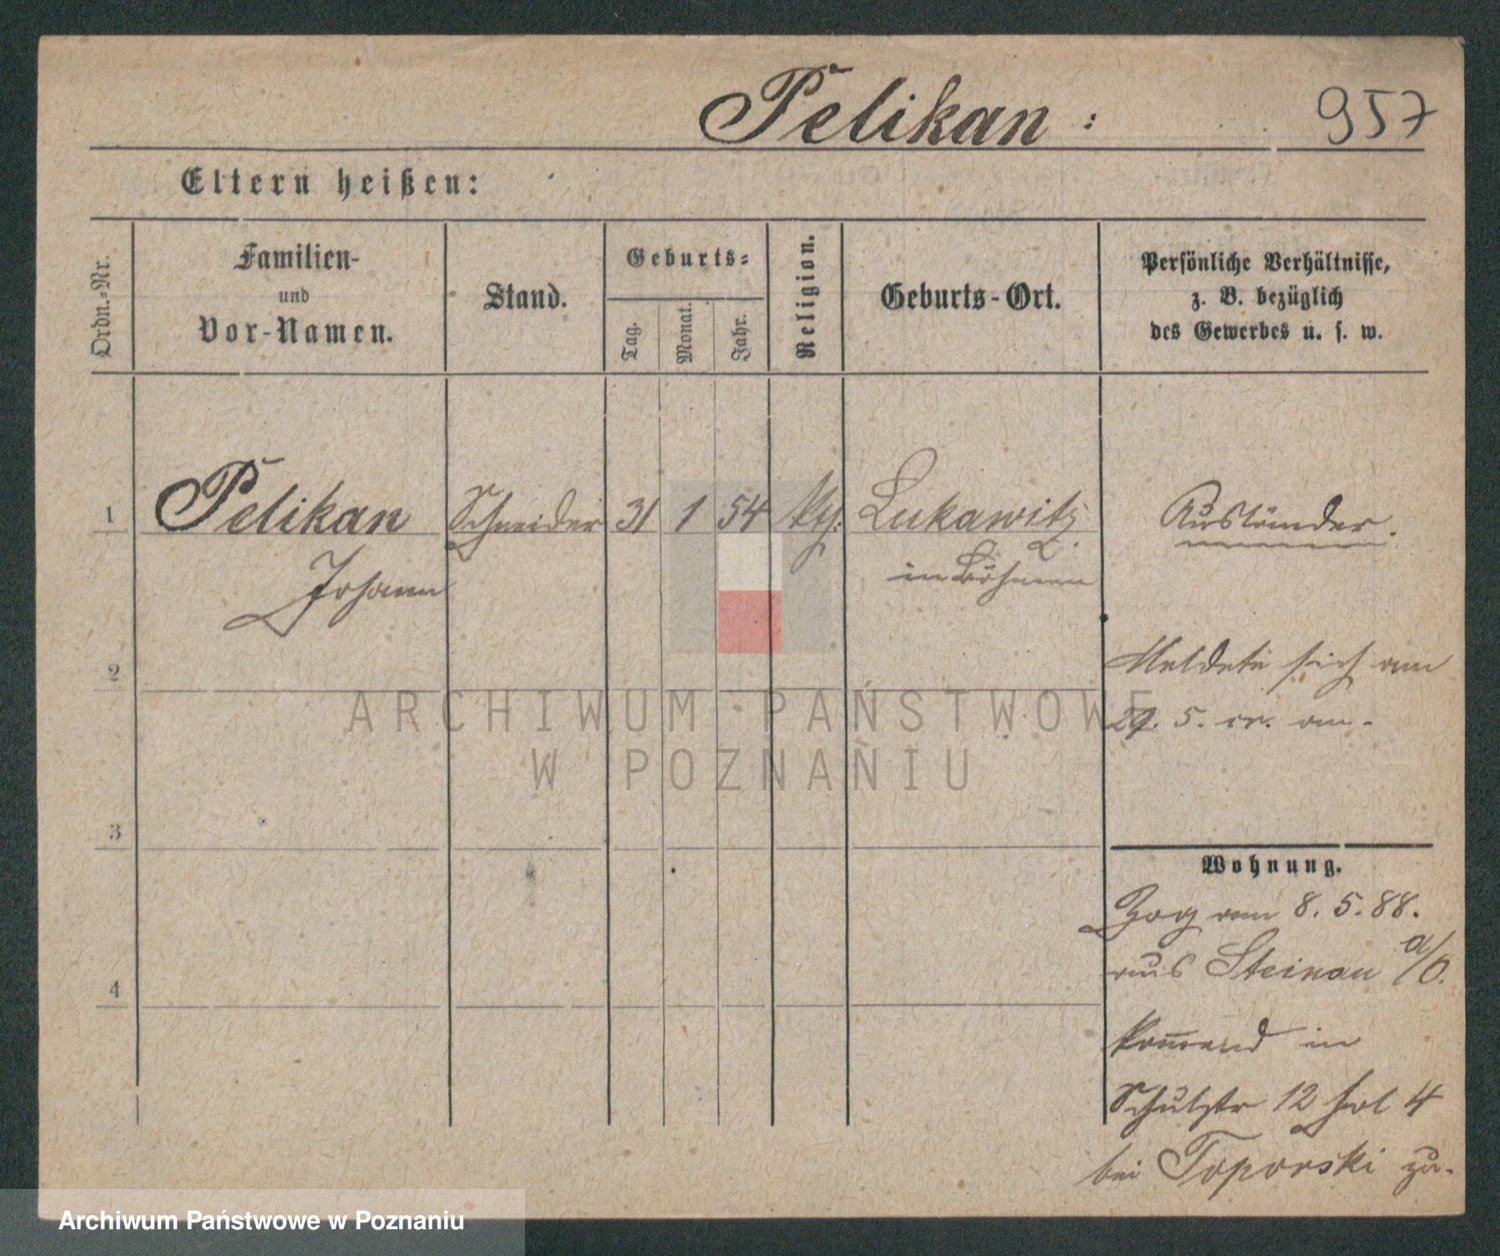 Pelikan :
957
Eltern heißen:
Ordn.-Nr.
Familien-
und
Vor-Namen.
Stand.
Geburts-
Tag.
Monat.
Jahr.
Religion.
Geburts-Ort.
Persönliche Verhältnisse,
z. B. bezüglich
des Gewerbes u. s. w.
1 Pelikan Schneider 31 1 54 Lukawitz
Johann
in Böhmen
Ausländer.
2
Meldete sich am
29. 5. cr. an.
3
Wohnung.
Zog am 8. 5. 88.
aus Steinau a/O.
4
kom̅end in
Schulstr 12 4
bei Toporski zu.
ARCHIWUM PAŃSTWOWE
W POZNANIU
Archiwum Państwowe w Poznaniu